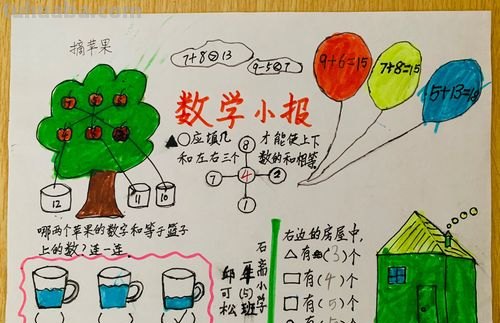 摘苹果
7+8>13
9-5<7
9+6=15
7+8=15
5+13=18
数学小报
▲○应填几
才能使上下
和左右三个
数的和相等
8
7 4 2
1
12 11 10
哪两个苹果的数字和等于篮子
上的数?连一连。
石高小学
一年(5)班
邱可松
右边的房屋中,
△有(3)个
□有(4)个
□有(5)个